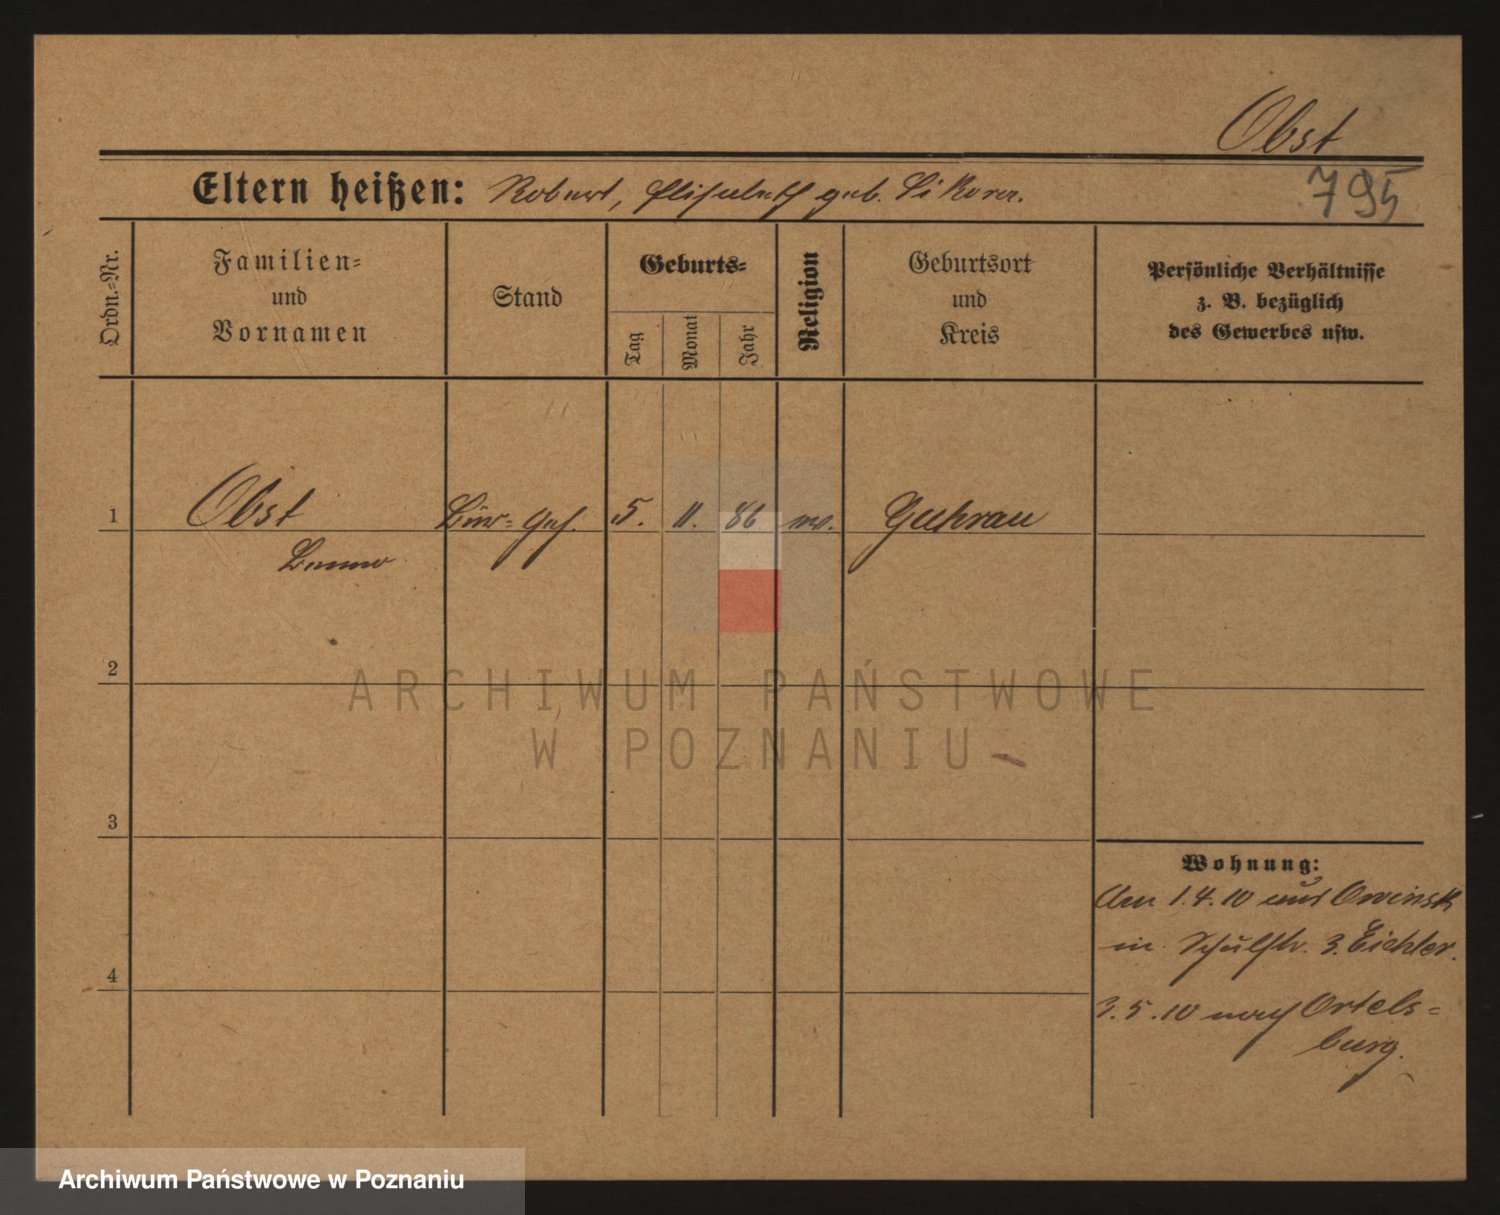 Obst
Eltern heißen: Robert, Elisabeth geb. Sikora.
795
Ordn.-Nr.
Familien-
und
Vornamen
Stand
Geburts-
Tag
Monat
Jahr
Religion
Geburtsort
und
Kreis
Persönliche Verhältnisse
z. B. bezüglich
des Gewerbes usw.
1
Obst
Benno
Geh.
5.
11.
86
Guhrau
2
ARCHIWUM PAŃSTWOWE
W POZNANIU
3
Wohnung:
Am 1.4.10 aus Owinsk
in Schulstr. 3. Eichler.
4
3.5.10 nach Ortels-
burg.
Archiwum Państwowe w Poznaniu